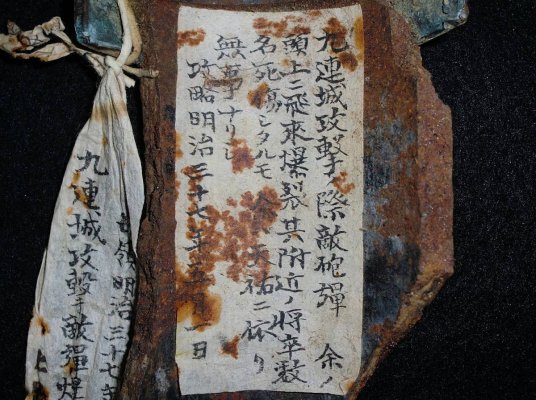 九連城攻撃ノ際敵砲彈 余ノ
頭上ニ飛來爆裂其附近ノ將卒数
名死傷シタルモ 天祐ニ依リ
無事ナリシ
攻略明治三十七年五月一日
領明治三十七年
九連城攻撃 敵彈